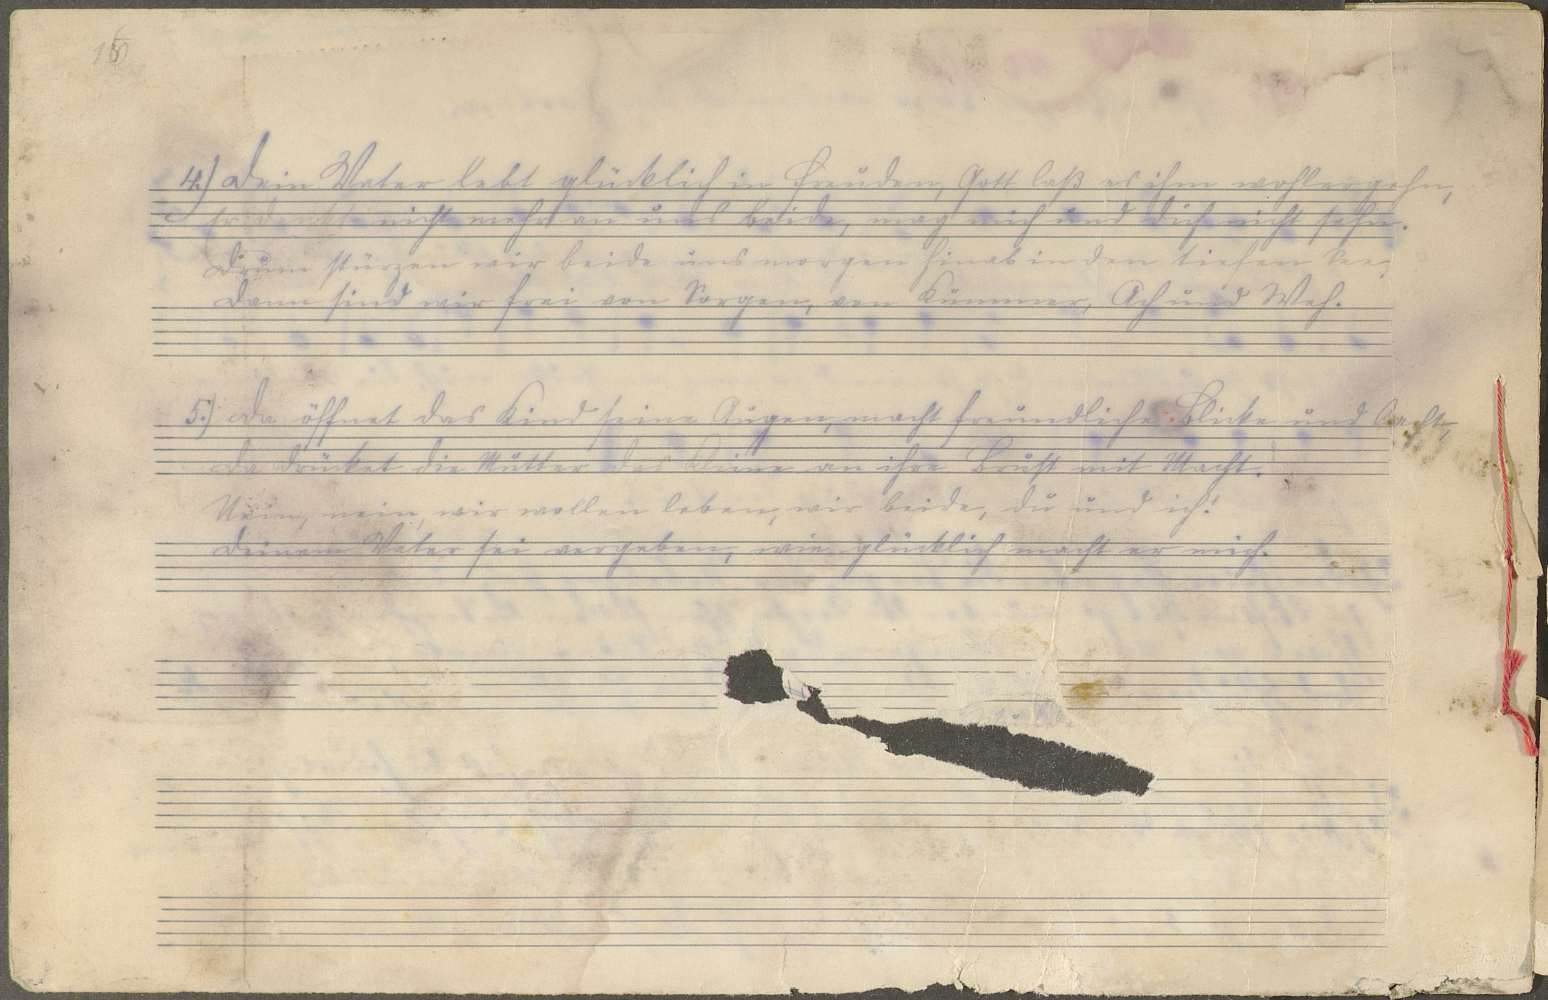 4.) Dein Vater lebt glücklich in Freuden, Gott laß es ihm wohlergehn,
Er denkt nicht mehr an uns beide, mag mich und dich nicht sehn.
Drum stürzen wir beide uns morgen hinab in den tiefen See,
Dann sind wir frei von Sorgen, von Kummer, Ach und Weh.
5.) Da öffnet das Kind seine Augen, macht freundliche Blicke und lacht,
Da drücket die Mutter das Kleine an ihre Brust mit Macht.
Nein, nein, wir wollen leben, wir beide, du und ich!
Deinem Vater sei vergeben, wie glücklich macht er mich.